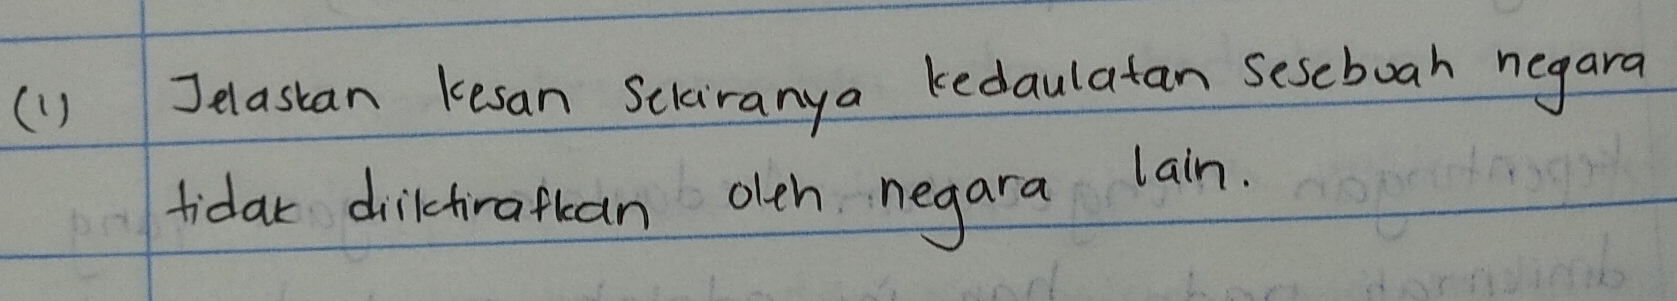 (1) Jelaskan kesan sekiranya kedaulatan sesebuah negara
tidak diiktirafkan oleh negara lain.